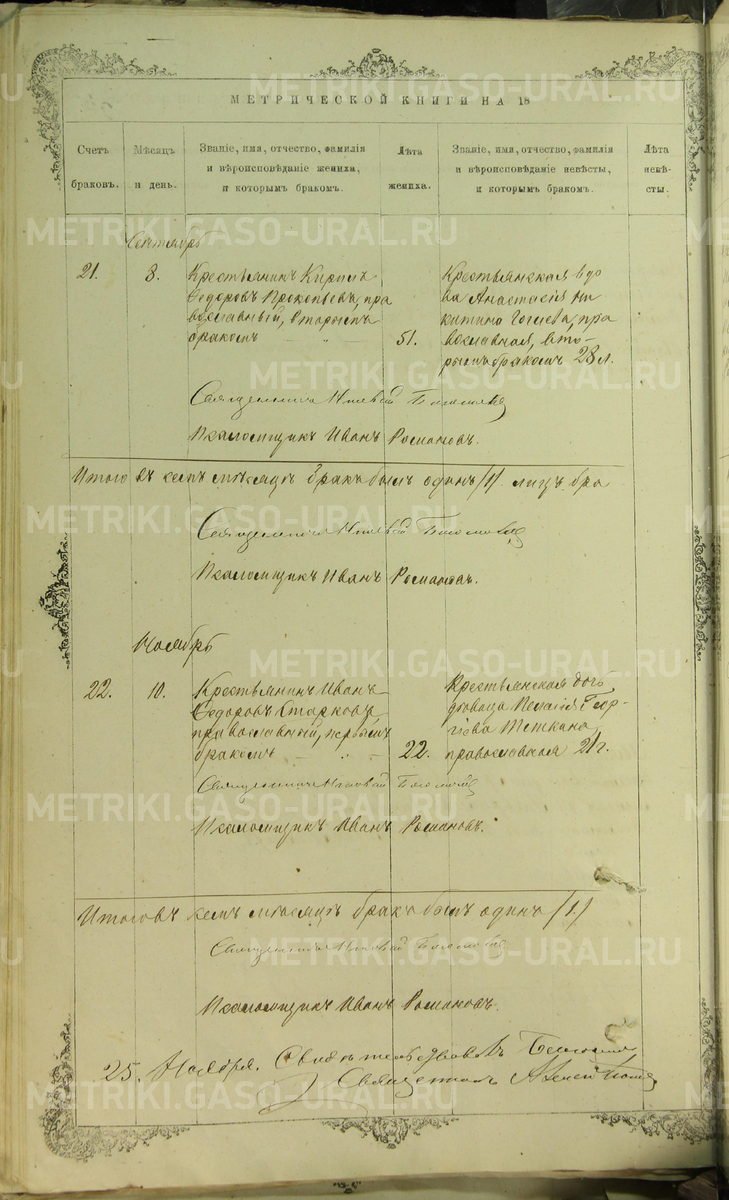 METRIKI.GASO-URAL.RU
МЕТРИЧЕСКОЙ КНИГИ НА 18
Счетъ браковъ.
Мѣсяцъ и день.
Званіе, имя, отчество, фамилія
и вѣроисповѣданіе жениха,
и которымъ бракомъ.
Лѣта жениха.
Званіе, имя, отчество, фамилія
и вѣроисповѣданіе невѣсты,
и которымъ бракомъ.
Лѣта невѣ-
сты.
Сентябрь
21.
8.
Крестьянинъ Кирилъ
Ѳедоровъ Прокопьевъ, пра
вославный, вторымъ
бракомъ
51.
Крестьянская вдо
ва Анастасія Ни
китина, пра
вославная, вто-
рымъ бракомъ 28 л.
Священникъ
Псаломщикъ Иванъ Романовъ.
Итого въ семъ мѣсяцѣ бракъ былъ одинъ /1/ лицъ
Священникъ
Псаломщикъ Иванъ Романовъ.
Ноябрь
22.
10.
Крестьянинъ Иванъ
Ѳедоровъ Старковъ,
православный, первымъ
бракомъ
22.
Крестьянская
Пелагія Геор-
гіева
православная 21 г.
Священникъ
Псаломщикъ Иванъ Романовъ.
Итого въ семъ мѣсяцѣ бракъ былъ одинъ /1/
Священникъ
Псаломщикъ Иванъ Романовъ.
25. Ноября. Свидѣтельствовалъ
Священникъ Алексѣй